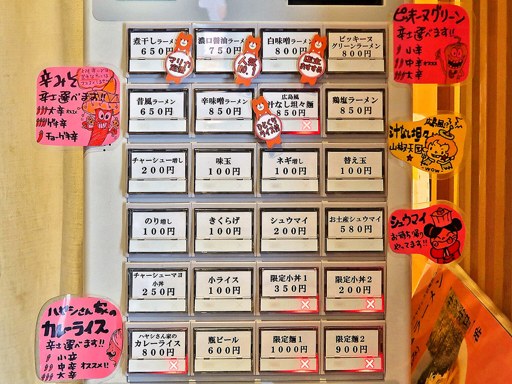 煮干しラーメン
650円
濃口醤油ラーメン
750円
白味噌ラーメン
800円
ピッキーヌ
グリーンラーメン
800円
人気
No.1
昔風ラーメン
650円
辛味噌ラーメン
850円
広島風
汁なし坦々麺
850円
鶏塩ラーメン
850円
チャーシュー増し
200円
味玉
100円
ネギ増し
100円
替え玉
100円
のり増し
100円
きくらげ
100円
シュウマイ
200円
お土産シュウマイ
580円
チャーシューマヨ
小丼
250円
小ライス
100円
限定小丼1
350円
限定小丼2
200円
ハヤシさん家の
カレーライス
800円
瓶ビール
600円
限定麺1
1000円
限定麺2
900円
辛みそ
辛さ選べます!!
大辛
ゲキ辛
チョーゲキ辛
ハヤシさん家の
カレーライス
辛さ選べます!!
小辛
中辛 オススメ!!
大辛
ピッキーヌグリーン
辛さ選べます!!
小辛
中辛
大辛
広島風
汁なし坦々
山椒天国
WOW
シュウマイ
お持ち帰り
やってます!!